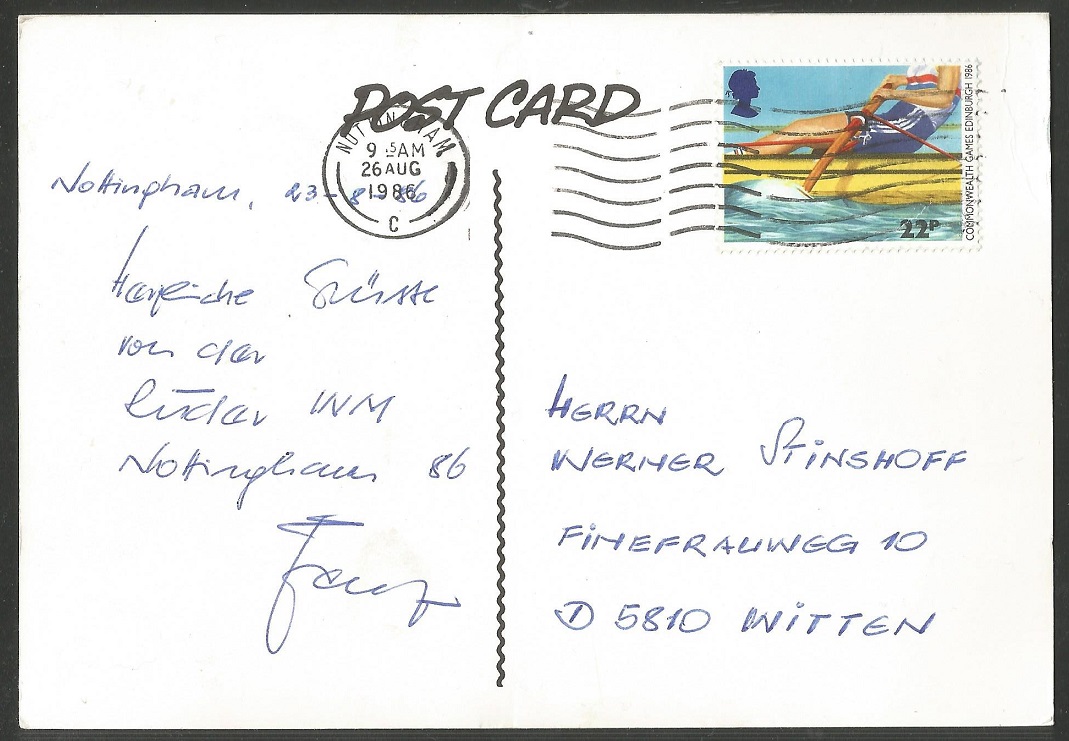 POST CARD
NOTTINGHAM
9 15AM
26 AUG
1986
C
COMMONWEALTH GAMES EDINBURGH 1986
22P
Nottingham, 23-8-86
Herzliche Grüsse
von der
Ruder WM
Nottingham 86
Franz
HERRN
WERNER STINSHOFF
FINEFRAUWEG 10
D 5810 WITTEN